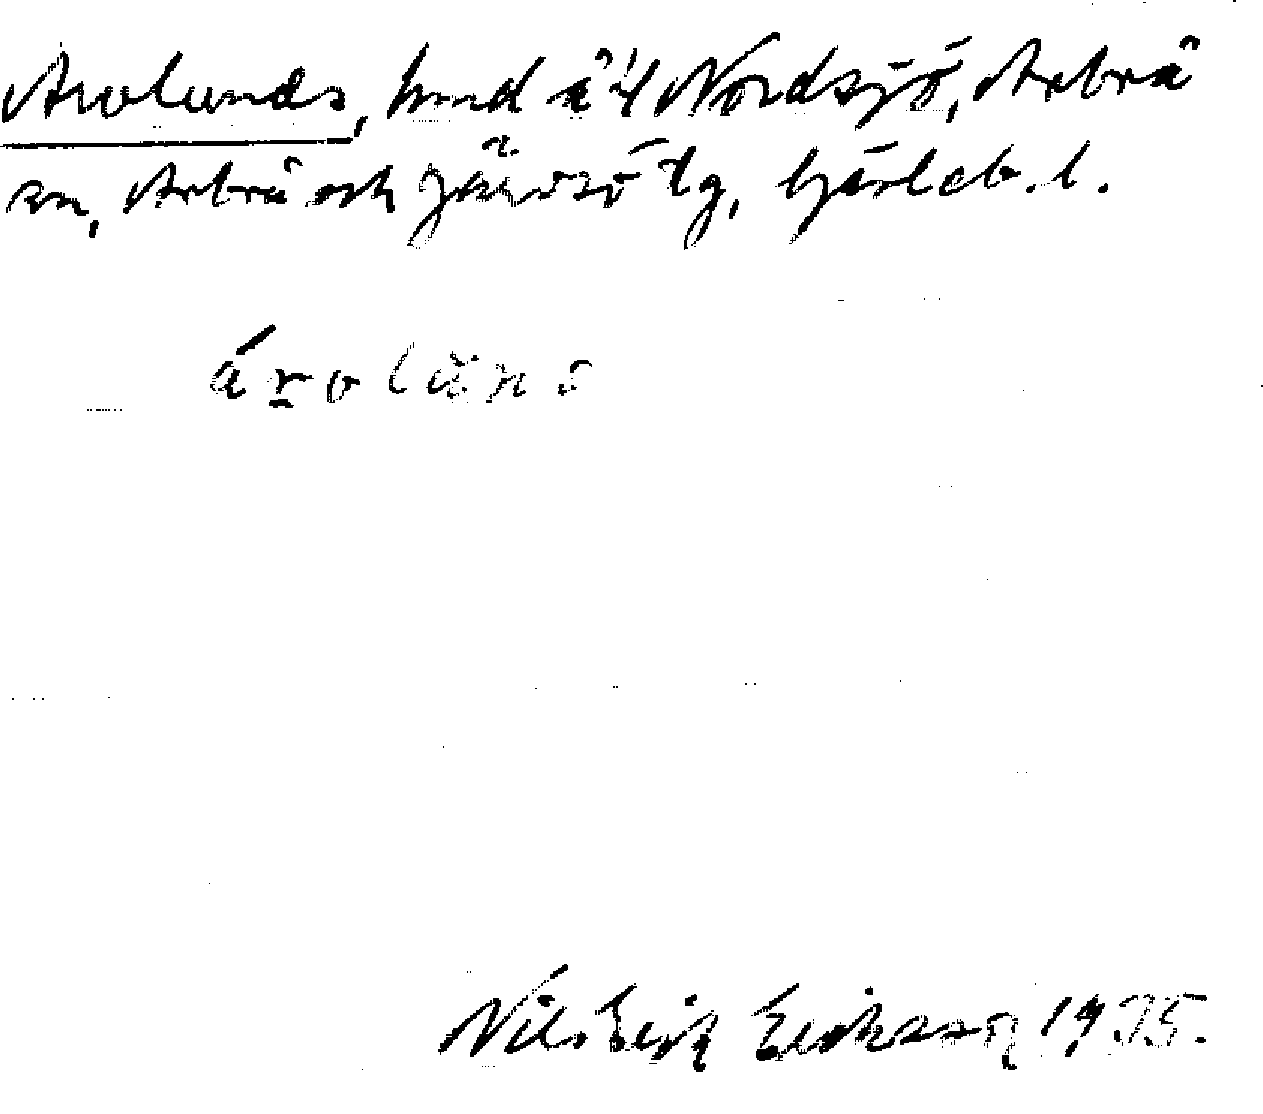 Arolunds, hmd å 4 Nordsjö, Arbrå
sn, Arbrå och Järvsö tg, Gävleb. l.
árolúns
Nils Erik Eriksson 1935.